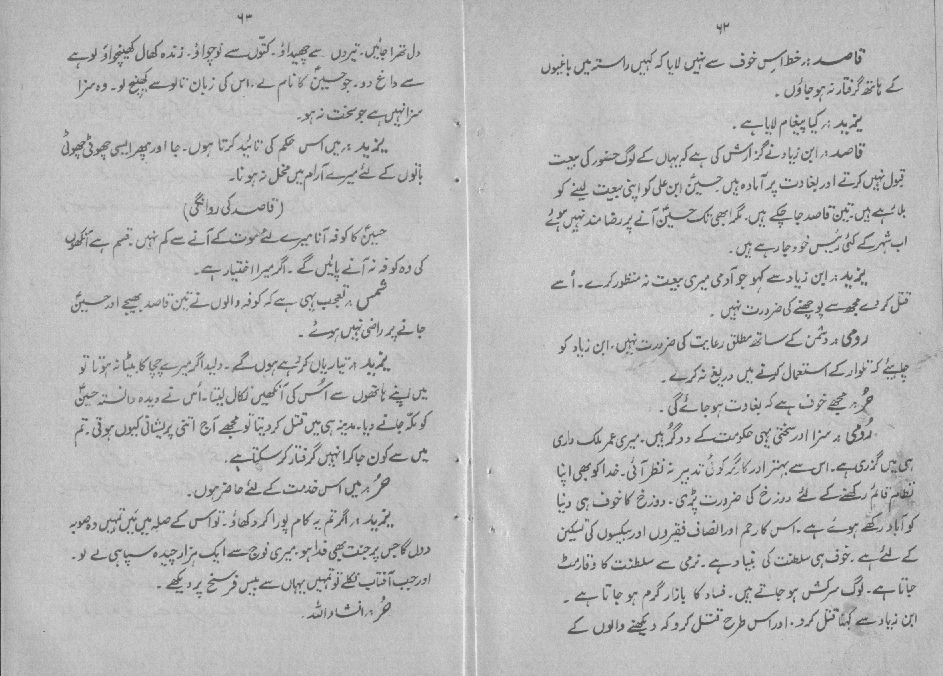 ۶۲
قاصد:۔ خط اس خوف سے نہیں لایا کہ کہیں راستہ میں باغیوں
کے ہاتھ گرفتار نہ ہو جاؤں ۔
یزید:۔ کیا پیغام لایا ہے ۔
قاصد:۔ ابن زیاد نے گزارش کی ہے کہ یہاں کے لوگ حضور کی بیعت
قبول نہیں کرتے اور بغاوت پر آمادہ ہیں حسینؑ ابن علی کو اپنی بیعت لینے کو
بلا رہے ہیں۔ تین قاصد جا چکے ہیں۔ مگر ابھی تک حسینؑ آنے پر رضا مند نہیں ہوئے
اب شہر کے کئی رئیس خود جا رہے ہیں ۔
یزید:۔ ابن زیاد سے کہو جو آدمی میری بیعت نہ منظور کرے۔ اُسے
قتل کر دے مجھ سے پوچھنے کی ضرورت نہیں ۔
رومی:۔ دشمن کے ساتھ مطلق رعایت کی ضرورت نہیں ۔ ابن زیاد کو
چاہیئے کہ تلوار کے استعمال کرنے میں دریغ نہ کرے ۔
حُر:۔ مجھے خوف ہے کہ بغاوت ہو جائے گی ۔
رُومی:۔ سزا اور سختی یہی حکومت کے دو گُر ہیں۔ میری عمر ملک داری
ہی میں گزری ہے۔ اس سے بہتر اور کارگر کوئی تدبیر نہ نظر آئی۔ خدا کو بھی اپنا
نظام قائم رکھنے کے لئے دوزخ کی ضرورت پڑی۔ دوزخ کا خوف ہی دنیا
کو آباد رکھے ہوئے ہے۔ اس کا رحم اور انصاف فقیروں اور بیکسوں کی تسکین
کے لئے ہے۔ خوف ہی سلطنت کی بنیاد ہے۔ نرمی سے سلطنت کا وقار مٹ
جاتا ہے۔ لوگ سرکش ہو جاتے ہیں۔ فساد کا بازار گرم ہو جاتا ہے ۔
ابن زیاد سے کہنا قتل کرو۔ اور اس طرح قتل کرو کہ دیکھنے والوں کے
۶۳
دل تھرا جائیں۔ تیروں سے چھیداؤ۔ کتّوں سے نوچواؤ۔ زندہ کھال کھینچواؤ لوہے
سے داغ دو۔ جو حسینؑ کا نام لے۔ اس کی زبان تالو سے کھینچ لو۔ وہ سزا
سزا نہیں ہے جو سخت نہ ہو۔
یزید:۔ میں اس حکم کی تائید کرتا ہوں۔ جا اور پھر ایسی چھوٹی چھوٹی
باتوں کے لئے میرے آرام میں مخل نہ ہونا۔
(قاصد کی روانگی)
حسینؑ کا کوفہ آنا میرے لئے موت کے آنے سے کم نہیں۔ قسم ہے آنکھوں
کی وہ کوفہ نہ آنے پائیں گے۔ اگر میرا اختیار ہے۔
شمس:۔ تعجب یہی ہے کہ کوفہ والوں نے تین قاصد بھیجے اور حسینؑ
جانے پر راضی نہیں ہوئے ۔
یزید:۔ تیاریاں کر رہے ہوں گے۔ ولید اگر میرے چچا کا بیٹا نہ ہوتا تو
میں اپنے ہاتھوں سے اُس کی آنکھیں نکال لیتا۔ اس نے دیدہ دانستہ حسینؑ
کو مکہ جانے دیا۔ مدینہ ہی میں قتل کر دیتا تو مجھے آج اتنی پریشانی کیوں ہوتی۔ تم
میں سے کون جا کر انہیں گرفتار کر سکتا ہے۔
حُر:۔ میں اس خدمت کے لئے حاضر ہوں۔
یزید:۔ اگر تم یہ کام پورا کر دکھاؤ۔ تو اس کے صلہ میں میں تمہیں وہ صوبہ
دوں گا جس پر جنت بھی فدا ہو۔ میری فوج سے ایک ہزار چیدہ سپاہی لے لو۔
اور جب آفتاب نکلے تو تمہیں یہاں سے بیس فرسنخ پر دیکھے ۔
حُر:۔ انشاء اللہ۔